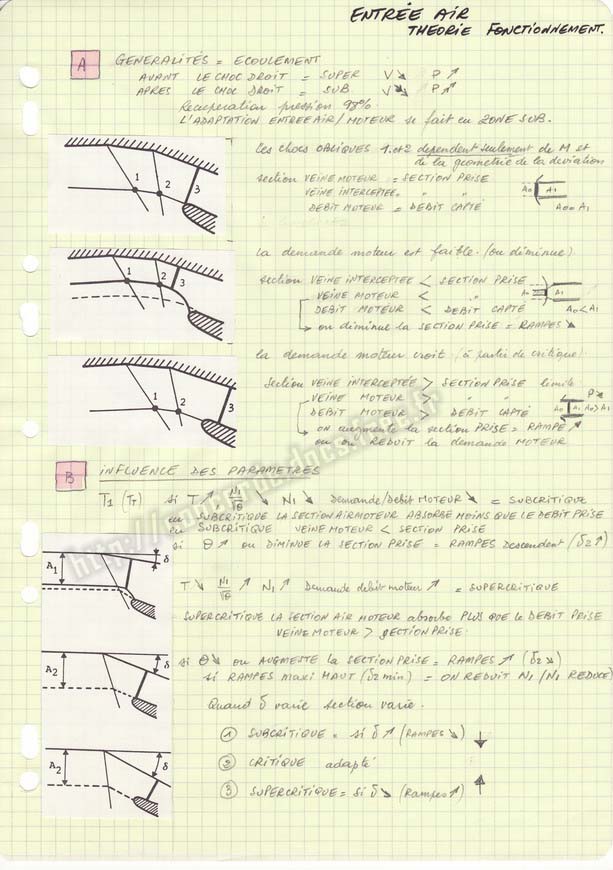 ENTRÉE AIR
THEORIE FONCTIONNEMENT.
A GENERALITÉS = ECOULEMENT
AVANT LE CHOC DROIT = SUPER V↘ P↗
APRES LE CHOC DROIT = SUB. V↘ P↗
Recuperation pression 98%
L'ADAPTATION ENTREE AIR/MOTEUR se fait en ZONE SUB.
Les chocs OBLIQUES 1 et 2 dependent seulement de M et
de la geometrie de la deviation
section VEINE MOTEUR = SECTION PRISE
VEINE INTERCEPTEE = " "
DEBIT MOTEUR = DEBIT CAPTÉ
A0 A1
A0 = A1
1 2 3
la demande moteur est faible. (ou diminue)
section VEINE INTERCEPTÉE < SECTION PRISE
VEINE MOTEUR < "
DEBIT MOTEUR < DEBIT CAPTÉ
→ on diminue la SECTION PRISE = RAMPES ↘
A0 A1
A0 < A1
1 2 3
la demande moteur croit (à partir de critique)
Section VEINE INTERCEPTÉE > SECTION PRISE limite
VEINE MOTEUR > " "
DEBIT MOTEUR > DEBIT CAPTÉ
→ on augmente la section PRISE = RAMPE ↗
ou on REDUIT la demande MOTEUR
P↘
A1 A0>A1
1 2 3
B INFLUENCE DES PARAMETRES
T1 (Tt) si T↗ N1/√θ ↘ N1↘ Demande/Debit MOTEUR ↘ = SUBCRITIQUE
en SUBCRITIQUE LA SECTION AIR MOTEUR ABSORBE MOINS QUE LE DEBIT PRISE
en SUBCRITIQUE VEINE MOTEUR < SECTION PRISE
si θ↗ on DIMINUE LA SECTION PRISE = RAMPES Descendent (δ2↗)
A1 δ
T↘ N1/√θ ↗ N1↗ Demande debit moteur ↗ = SUPERCRITIQUE
SUPERCRITIQUE LA SECTION AIR MOTEUR absorbe PLUS QUE LE DEBIT PRISE
VEINE MOTEUR > SECTION PRISE
A2 δ
si θ↘ on AUGMENTE la SECTION PRISE = RAMPES ↗ (δ2↘)
si RAMPES maxi HAUT (δ2 min) = ON REDUIT N1 (N1 REDUCE)
Quand δ varie section varie.
A2 δ
① SUBCRITIQUE = si δ↗ (RAMPES↘) ↓
② CRITIQUE adapté
③ SUPERCRITIQUE = Si δ↘ (Rampes↗) ↑